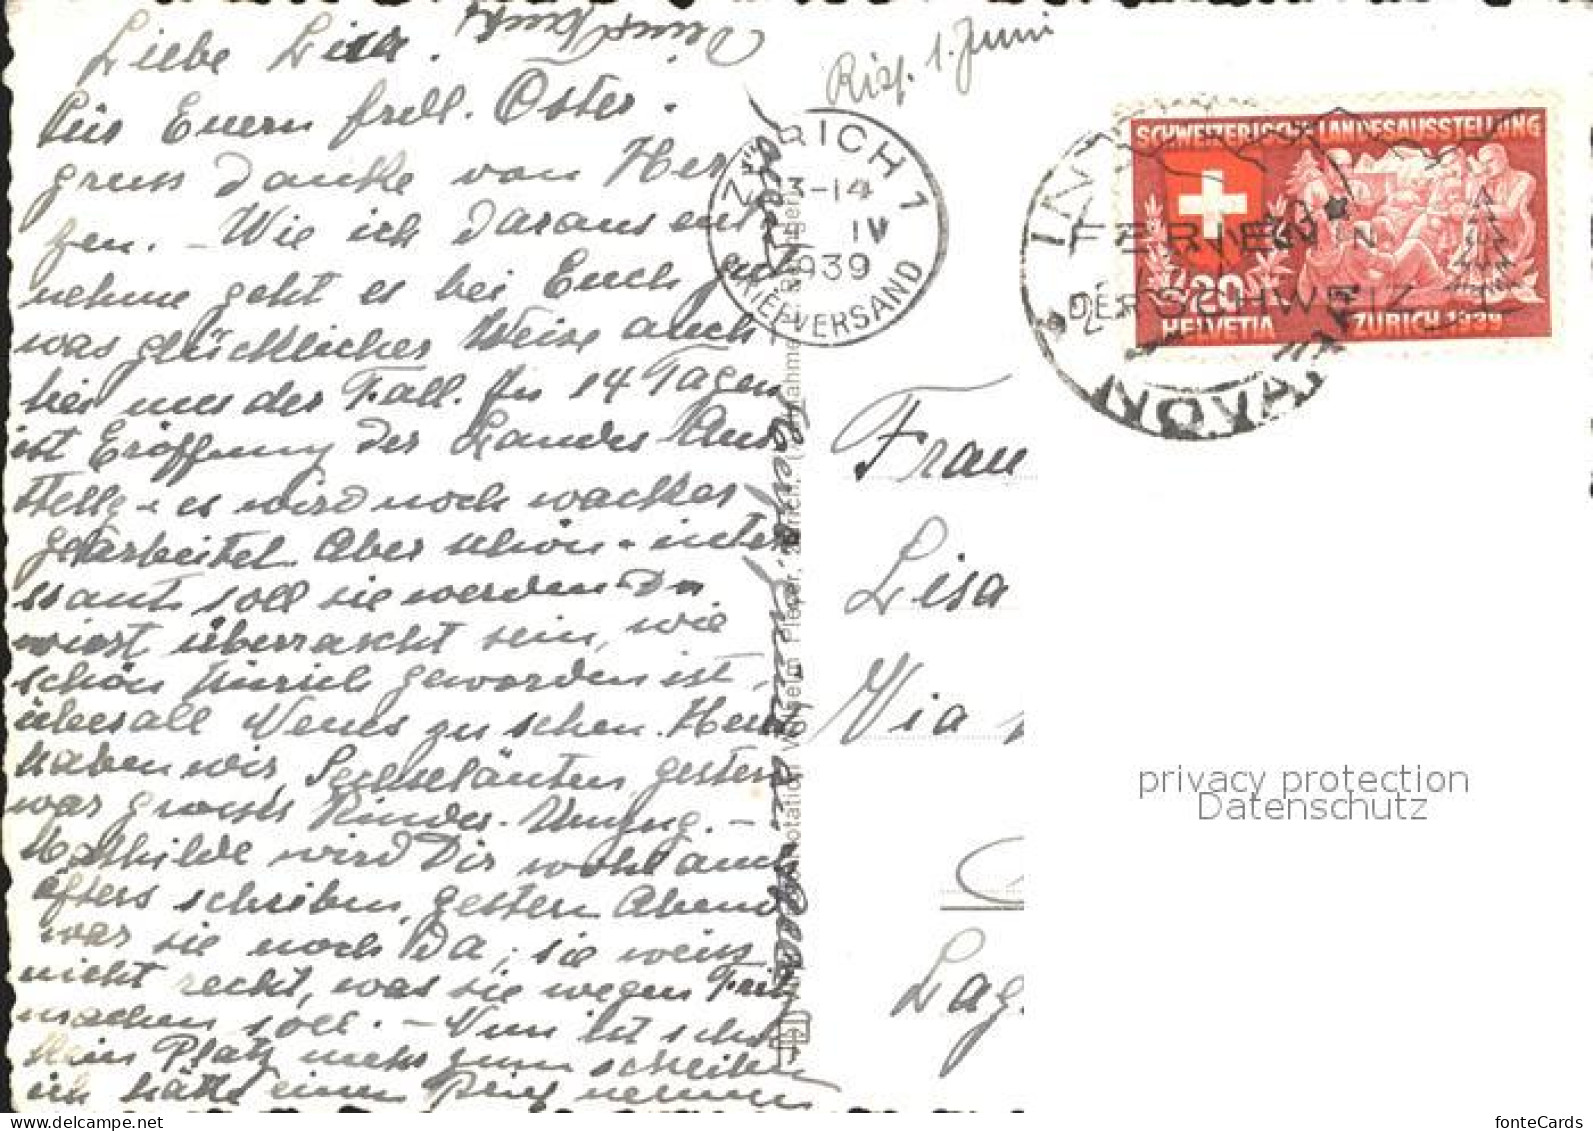 Liebe Lisa.
Für Euern frdl. Oster-
gruss danke von Her-
zen. – Wie ich daraus ent-
nehme geht es bei Euch gut
was glücklicher Weise auch
bei uns der Fall. In 14 Tagen
ist Eröffnung der Landes Aus-
stellg. es wird noch wacker
gearbeitet. Aber schön + inter-
ssant soll sie werden. Du
wirst überrascht sein, wie
schön Zürich geworden ist,
überall Neues zu sehen. Heut
haben wir Sechseläuten, gestern
war grosser Kinder-Umzug. –
Mathilde wird Dir wohl auch
öfters schreiben, gestern Abend
war sie noch Da; sie weiss
nicht recht, was sie wegen Fritz
machen soll. – Nun ist schon
kein Platz mehr zum schreiben
ich hätte einen Brief nehmen
Risp. 1. Juni
ZÜRICH 1
13-14
IV
1939
BRIEFVERSAND
FERIEN IN
DER SCHWEIZ
SCHWEIZERISCHE LANDESAUSSTELLUNG
20
HELVETIA
ZÜRICH 1939
Frau
Lisa
Via
Lag.
Wilhelm Pleyer, Zürich
privacy protection
Datenschutz
fonteCards